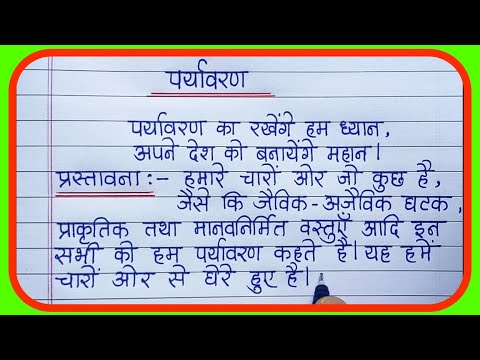 पर्यावरण
पर्यावरण का रखेंगे हम ध्यान,
अपने देश को बनायेंगे महान।
प्रस्तावना:- हमारे चारों ओर जो कुछ है,
जैसे कि जैविक-अजैविक घटक,
प्राकृतिक तथा मानवनिर्मित वस्तुएँ आदि इन
सभी को हम पर्यावरण कहते हैं। यह हमें
चारों ओर से घेरे हुए है।